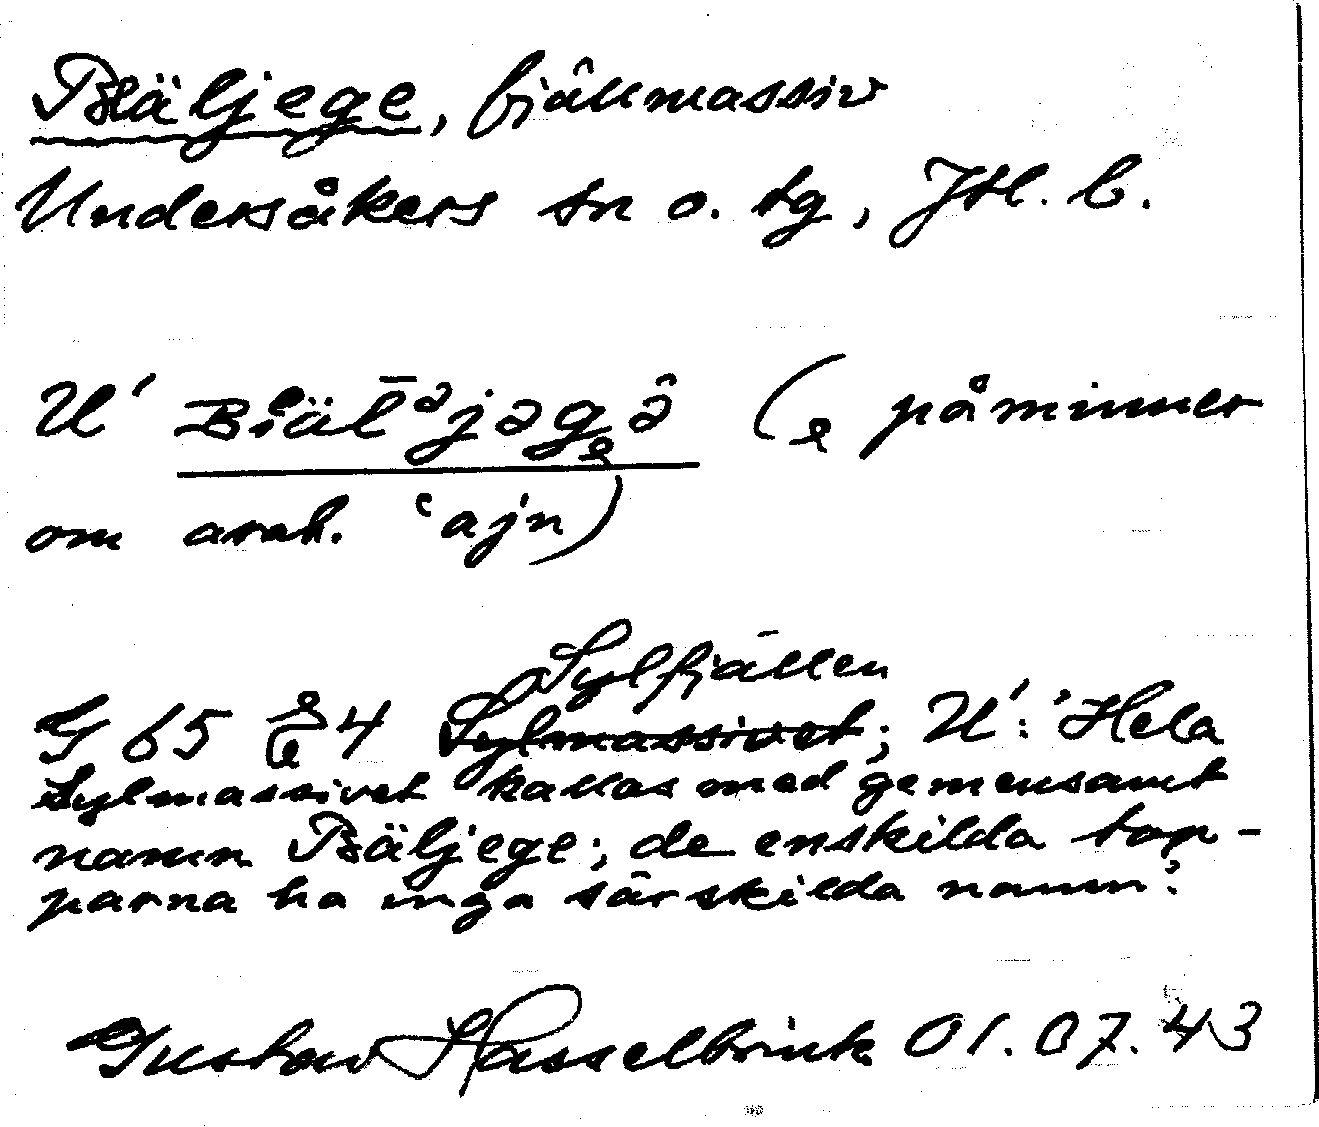 Bäljege, fjällmassiv
Undersåkers sn o. tg, Jtl. l.
U'
(e påminner
om arab. ʿajn)
Sylfjällen
G 65 4 Sylmassivet; U': 'Hela
Sylmassivet kallas med gemensamt
namn Bäljege; de enskilda top-
parna ha inga särskilda namn.'
Gustav Hasselbrink 01.07.43